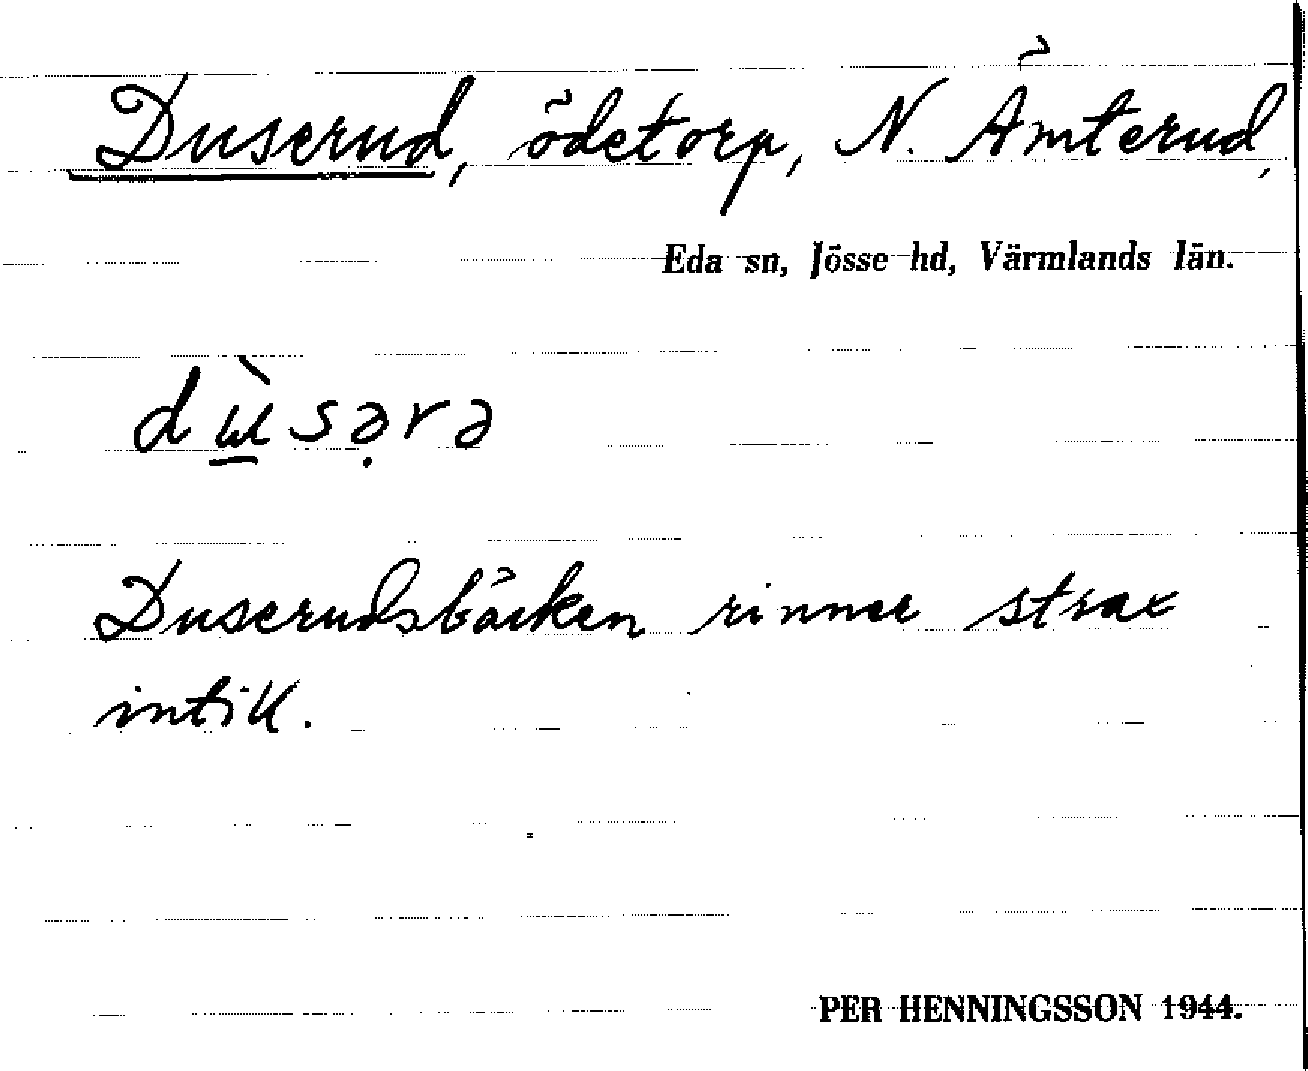 Duserud, ödetorp, N. Ämterud,
Eda sn, Jösse hd, Värmlands län.
dɯ̲̀sə̣rə
Duserudsbäcken rinner strax
intill.
PER HENNINGSSON 1944.